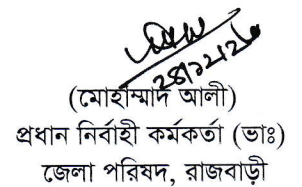 (মোহাম্মাদ আলী)
প্রধান নির্বাহী কর্মকর্তা (ভাঃ)
জেলা পরিষদ, রাজবাড়ী